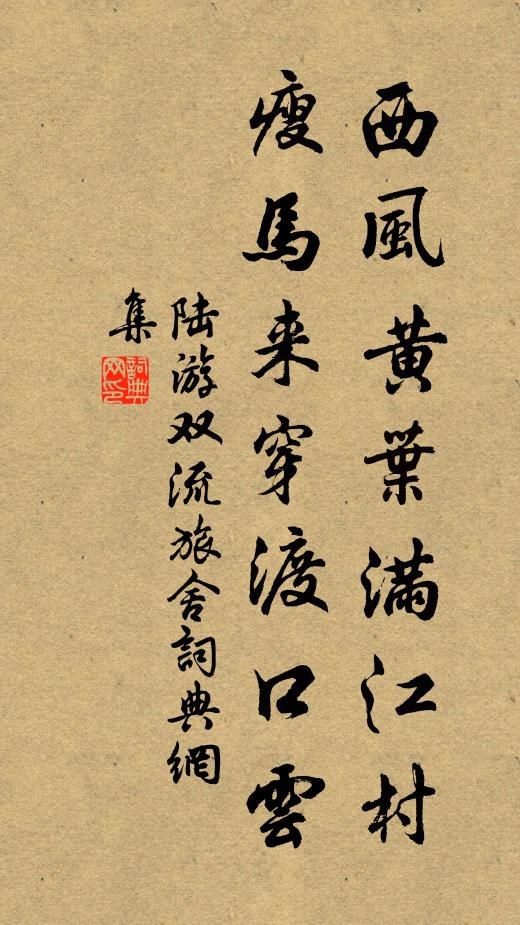 西風黃葉滿江村
瘦馬来穿渡口雲
陆游双流旅舍詞典網
集
詞典
网印